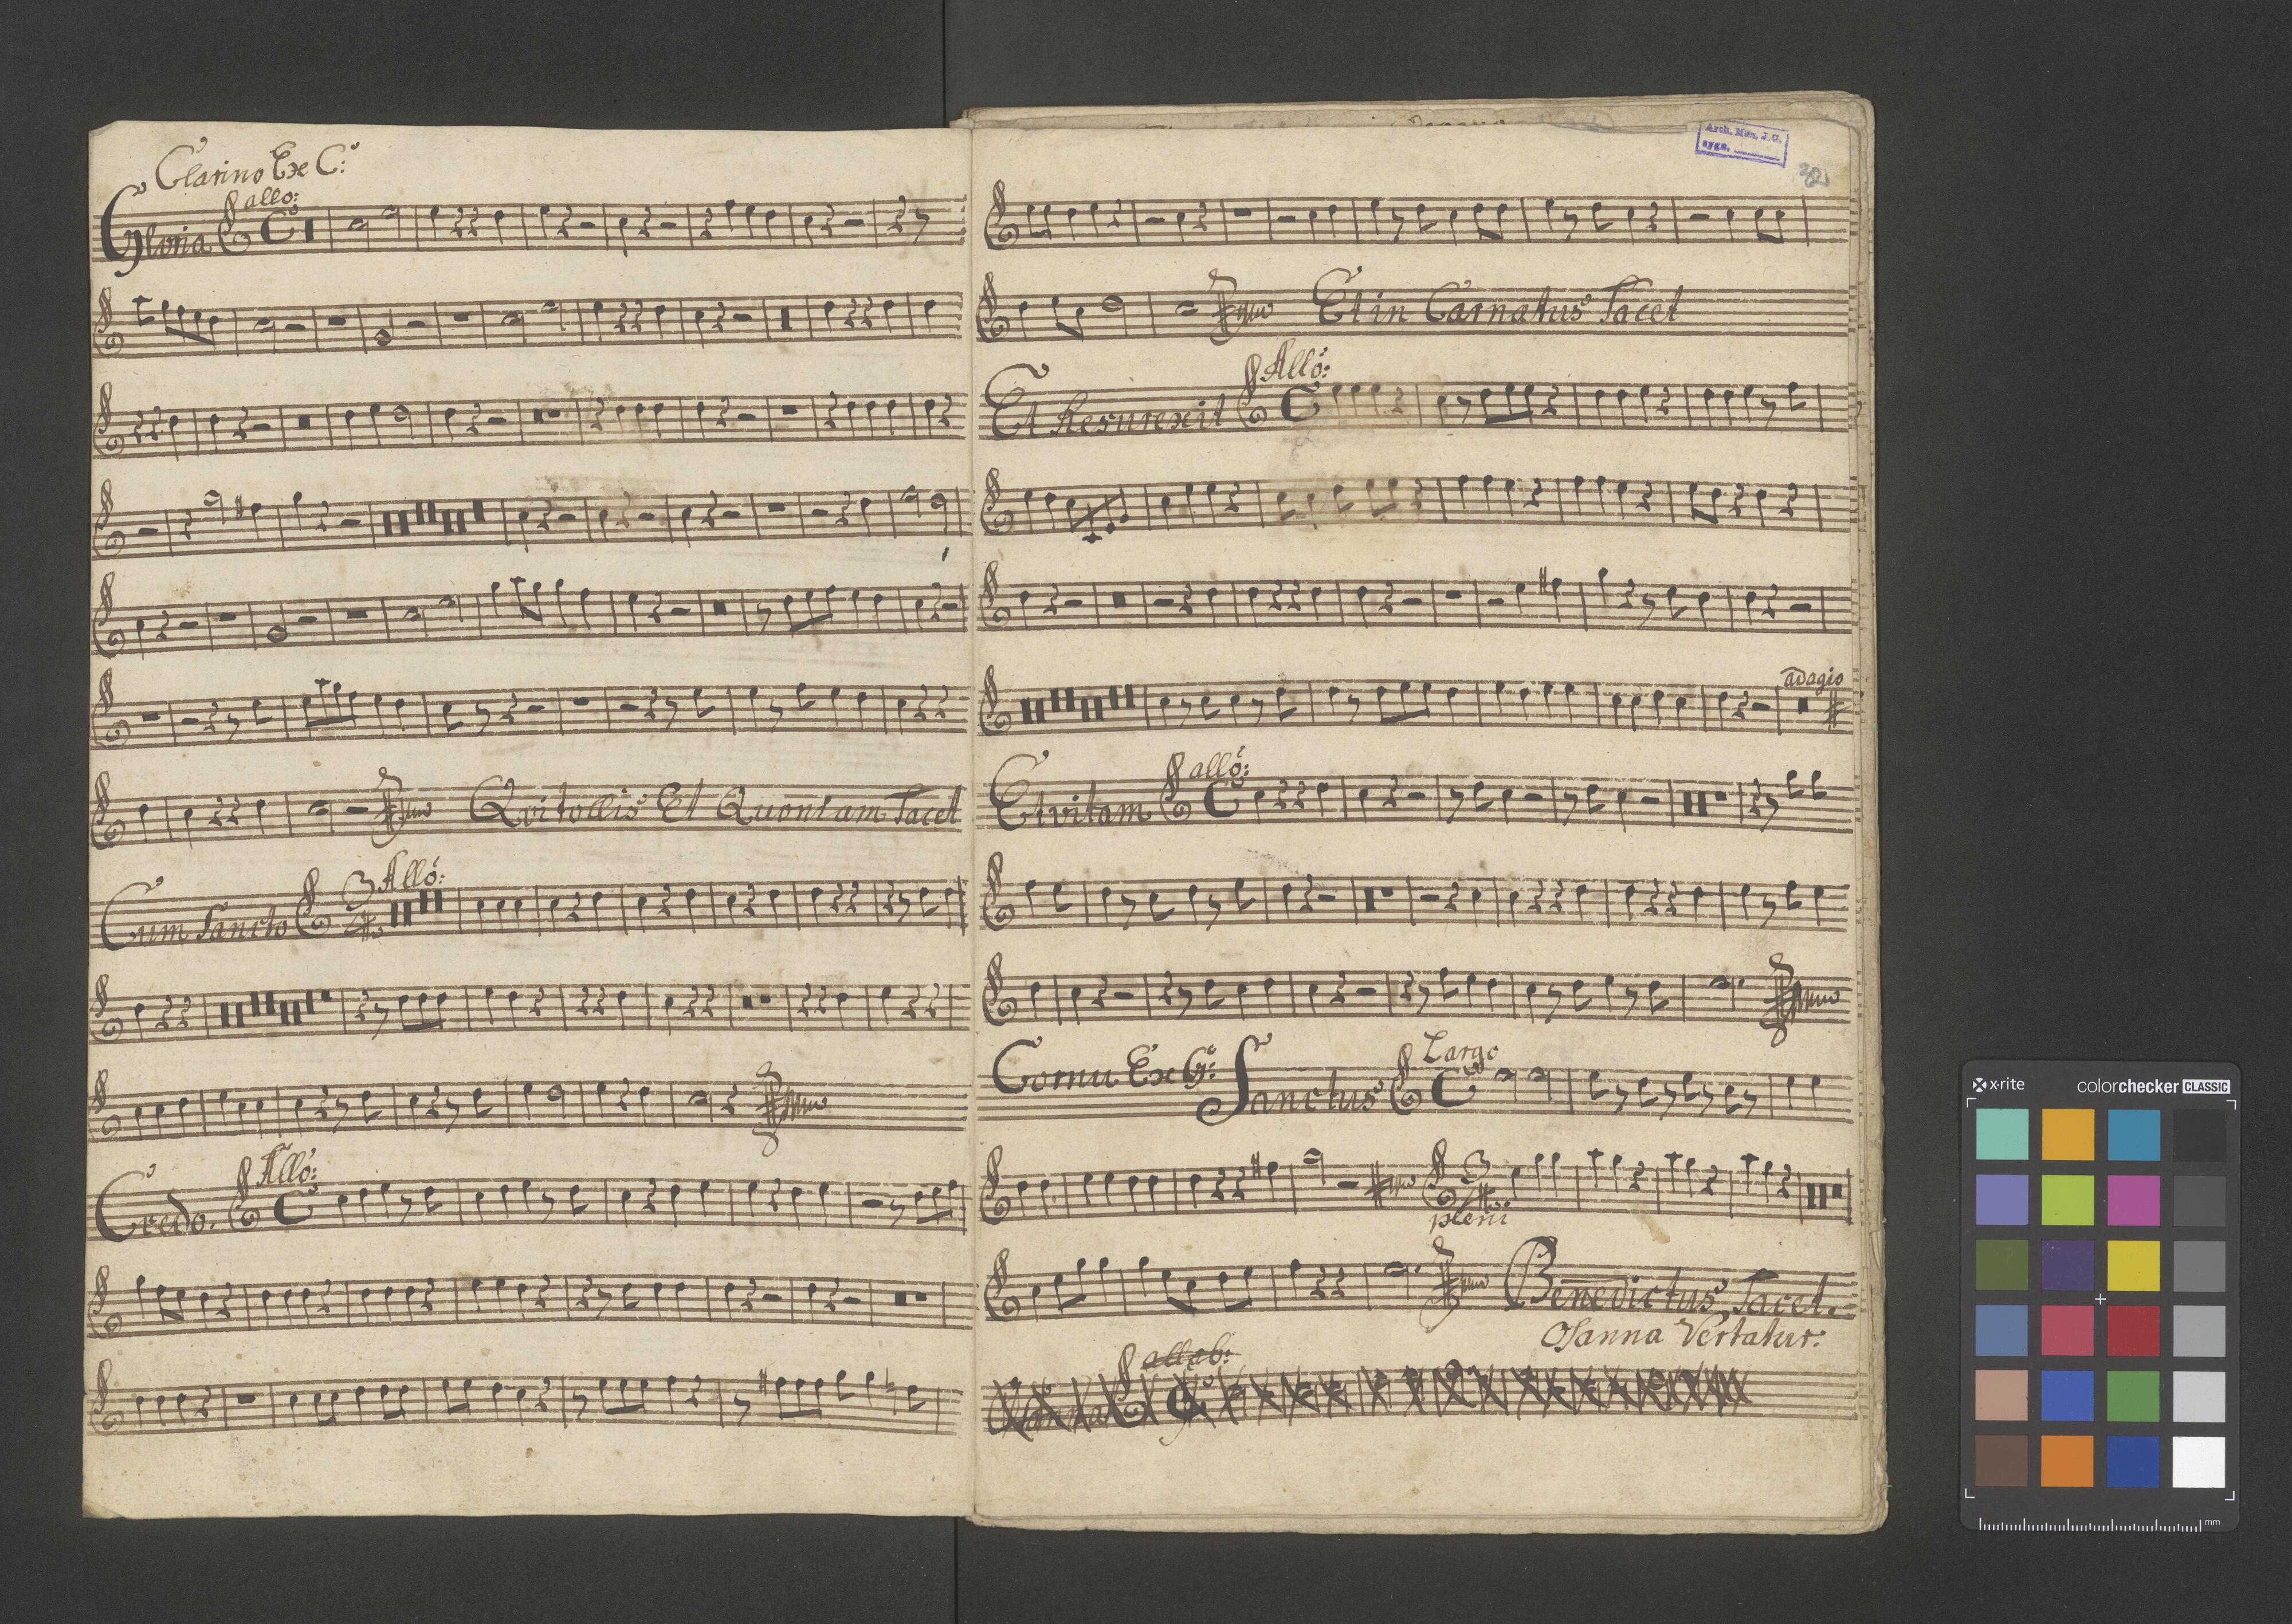 Clarino Ex C:
allo:
Gloria
Qvi tollis Et Quoniam Tacet
Allo:
Cum Sancto 3
Allo:
Credo.
Arch. Mon. J.G.
sygn.
Et in Carnatus Tacet
Allo:
Et Resurexit
adagio
allo:
Et vitam
Largo
Cornu Ex G: Sanctus
3
pleni
Benedictus Tacet.
Osanna Vertatur.
allab:
x-rite colorchecker CLASSIC
mm